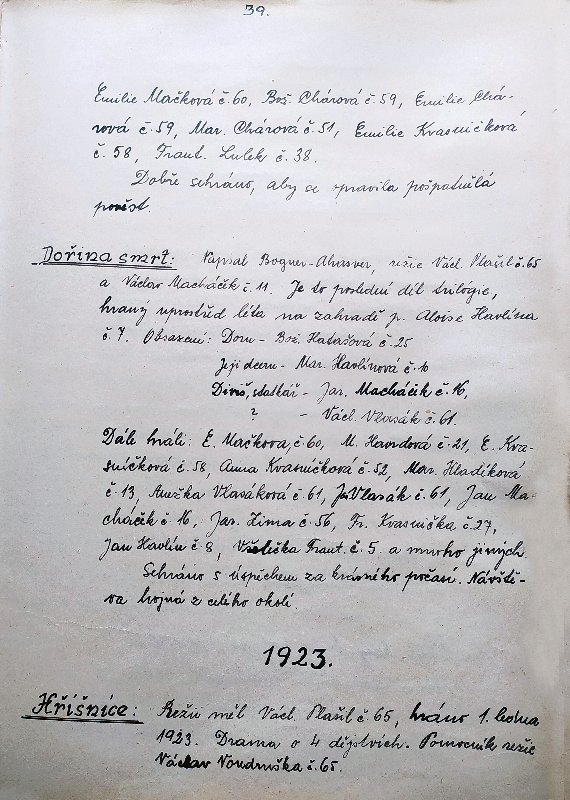 39.
Emilie Mačková č. 60, Bož. Chárová č. 59, Emilie Chá-
rová č. 59, Mar. Chárová č. 51, Emilie Krasničková
č. 58, Frant. Lulek č. 38.
Dobře sehráno, aby se spravila pošpatnělá
pověst.
Dořina smrt: Napsal Bogner-Ahasver, režie Václ. Plašil č. 65
a Václav Macháčik č. 11. Je to poslední díl trilogie,
hraný uprostřed léta na zahradě p. Aloise Havlína
č. 7. Obsazení: Doru - Bož. Hatašová č. 25
Její dceru - Mar. Havlínová č. 10
Diviš, statkář - Jar. Macháčik č. 16,
? - Václ. Vlasák č. 61.
Dále hráli: E. Mačkova, č. 60, M. Havrdová č. 21, E. Kva-
sničková č. 58, Anna Kvasničková č. 52, Mar. Hladíková
č. 13, Anežka Vlasáková č. 61, Vlasák č. 61, Jan Ma-
cháčěk č. 16, Jar. Zima č. 56, Fr. Kvasnička č. 27,
Jan Havlín č. 8, Všetička Frant. č. 5. a mnoho jiných.
Sehráno s úspěchem za krásného počasí. Návště-
va hojná z celého okolí.
1923.
Hříšnice: Režii měl Václ. Plašil č. 65, hráno 1. ledna
1923. Drama o 4 dějstvích. Pomocník režie
Václav Vondruška č. 65.